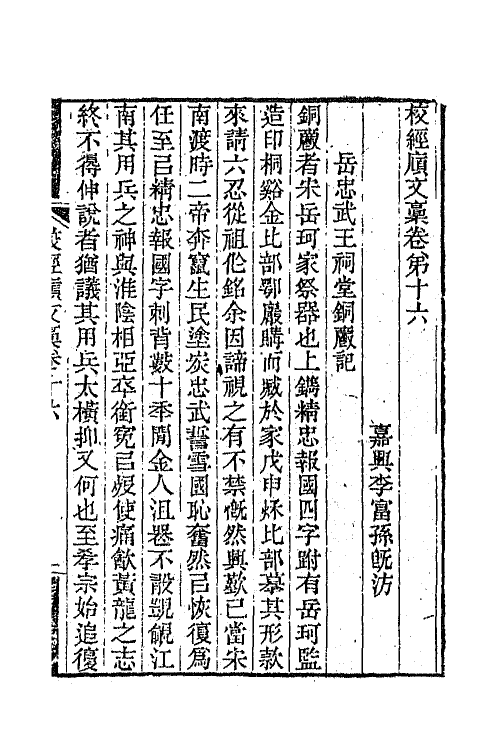 校經廎文稾卷第十六
嘉興李富孫既汸
岳忠武王祠堂銅爵記
銅爵者宋岳珂家祭器也上鐫精忠報國四字跗有岳珂監
造印桐谿金比部鄂巖購而臧於家戊申秌比部摹其形款
來請六忍從祖作銘余因諦視之有不禁慨然興歎已當宋
南渡時二帝奔竄生民塗炭忠武誓雪國恥奮然㠯恢復爲
任至㠯精忠報國字刺背數十秊閒金人沮喪不敢覬覦江
南其用兵之神與淮陰相亞卒銜冤㠯歿使痛飮黃龍之志
終不得伸說者猶議其用兵太橫抑又何也至孝宗始追復
校經廎文稾卷十六
一